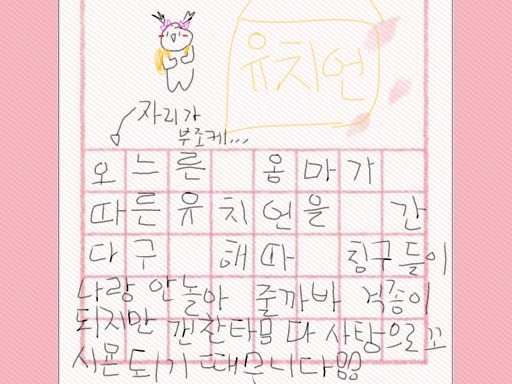 유치언
자리가
부조케...
오느른 옴마가
따른유치언을 간
다구 해따 칭구들이
나랑 안놀아 줄까바 걱종이
되지만 갠찬타묘 다 사탕으로 꼬
시묜 되기 때무니다뮤